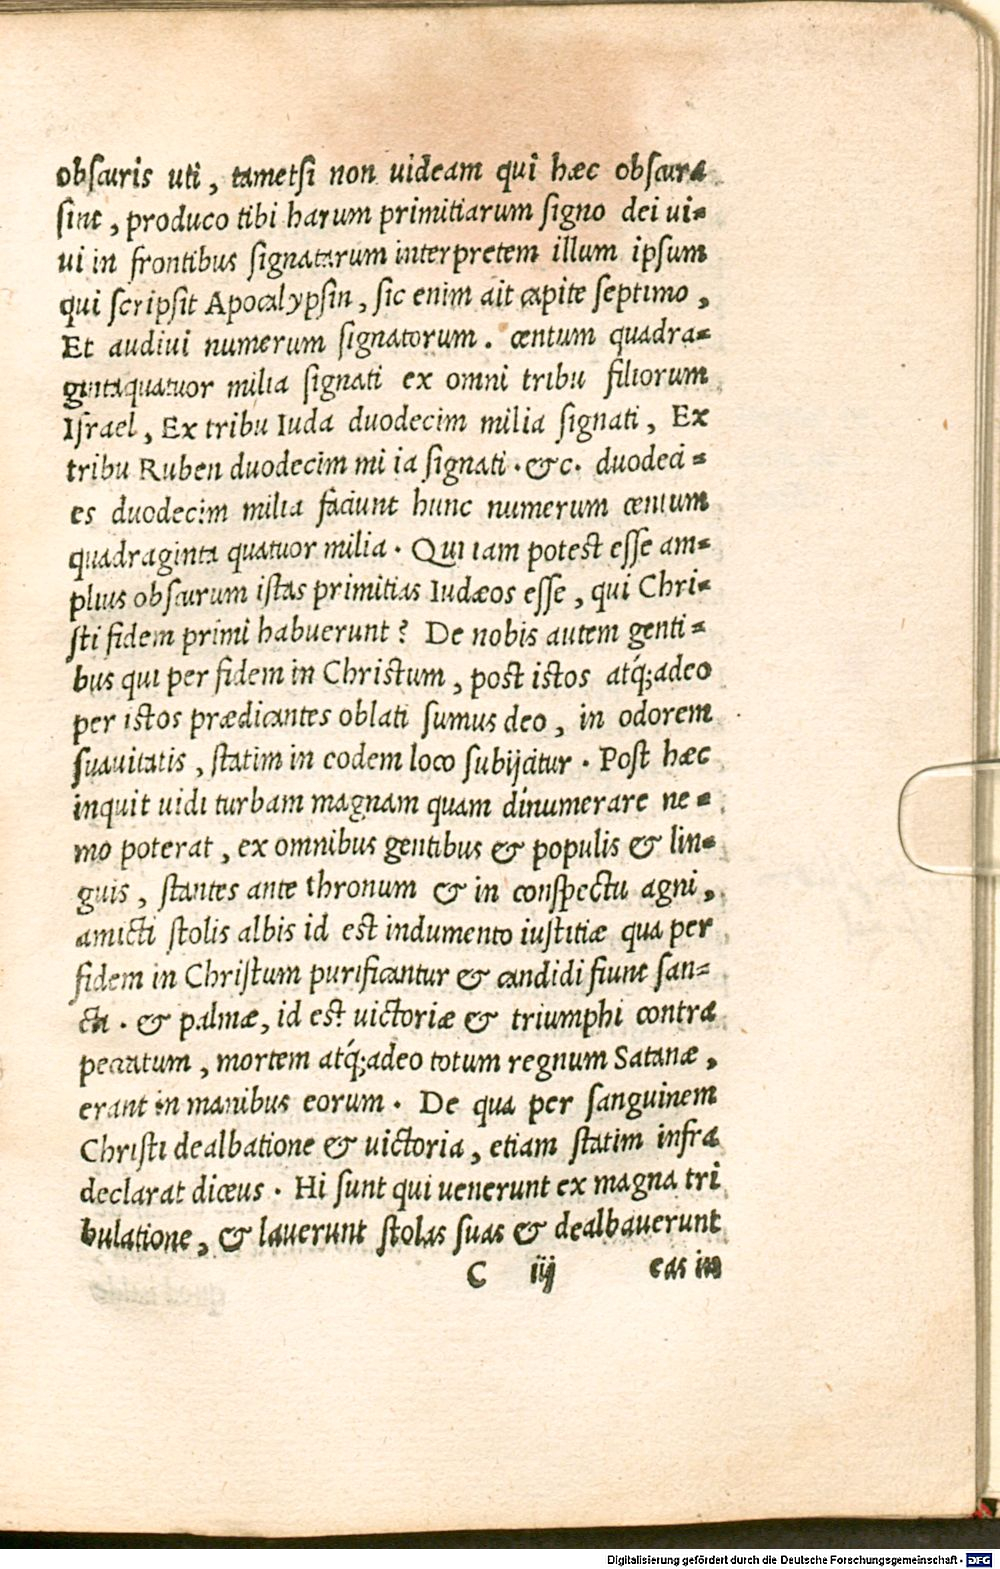 obſcuris uti, tametſi non uideam qui hæc obſcura
ſint, produco tibi harum primitiarum ſigno dei ui=
ui in frontibus ſignatarum interpretem illum ipſum
qui ſcripſit Apocalypſin, ſic enim ait capite ſeptimo,
Et audiui numerum ſignatorum. centum quadra=
gintaquatuor milia ſignati ex omni tribu filiorum
Iſrael, Ex tribu Iuda duodecim milia ſignati, Ex
tribu Ruben duodecim mi ia ſignati .&c. duodeci=
es duodecim milia faciunt hunc numerum centum
quadraginta quatuor milia. Qui iam potest eſſe am=
plius obſcurum iſtas primitias Iudæos eſſe, qui Chri=
ſti fidem primi habuerunt? De nobis autem genti=
bus qui per fidem in Christum, post istos atq́;adeo
per istos prædicantes oblati ſumus deo, in odorem
ſuauitatis, ſtatim in eodem loco ſubijcitur. Poſt hæc
inquit uidi turbam magnam quam dinumerare ne=
mo poterat, ex omnibus gentibus & populis & lin=
guis, ſtantes ante thronum & in conſpectu agni,
amicti ſtolis albis id est indumento iuſtitiæ qua per
fidem in Chriſtum purificantur & candidi fiunt ſan=
cta. & palmæ, id est uictoriæ & triumphi contra
peccatum, mortem atq́;adeo totum regnum Satanæ,
erant in manibus eorum. De qua per ſanguinem
Chriſti dealbatione & uictoria, etiam ſtatim infra
declarat diceus. Hi ſunt qui uenerunt ex magna tri
bulatione, & lauerunt ſtolas ſuas & dealbauerunt
C iij eas in
Digitalisierung gefördert durch die Deutsche Forschungsgemeinschaft - DFG